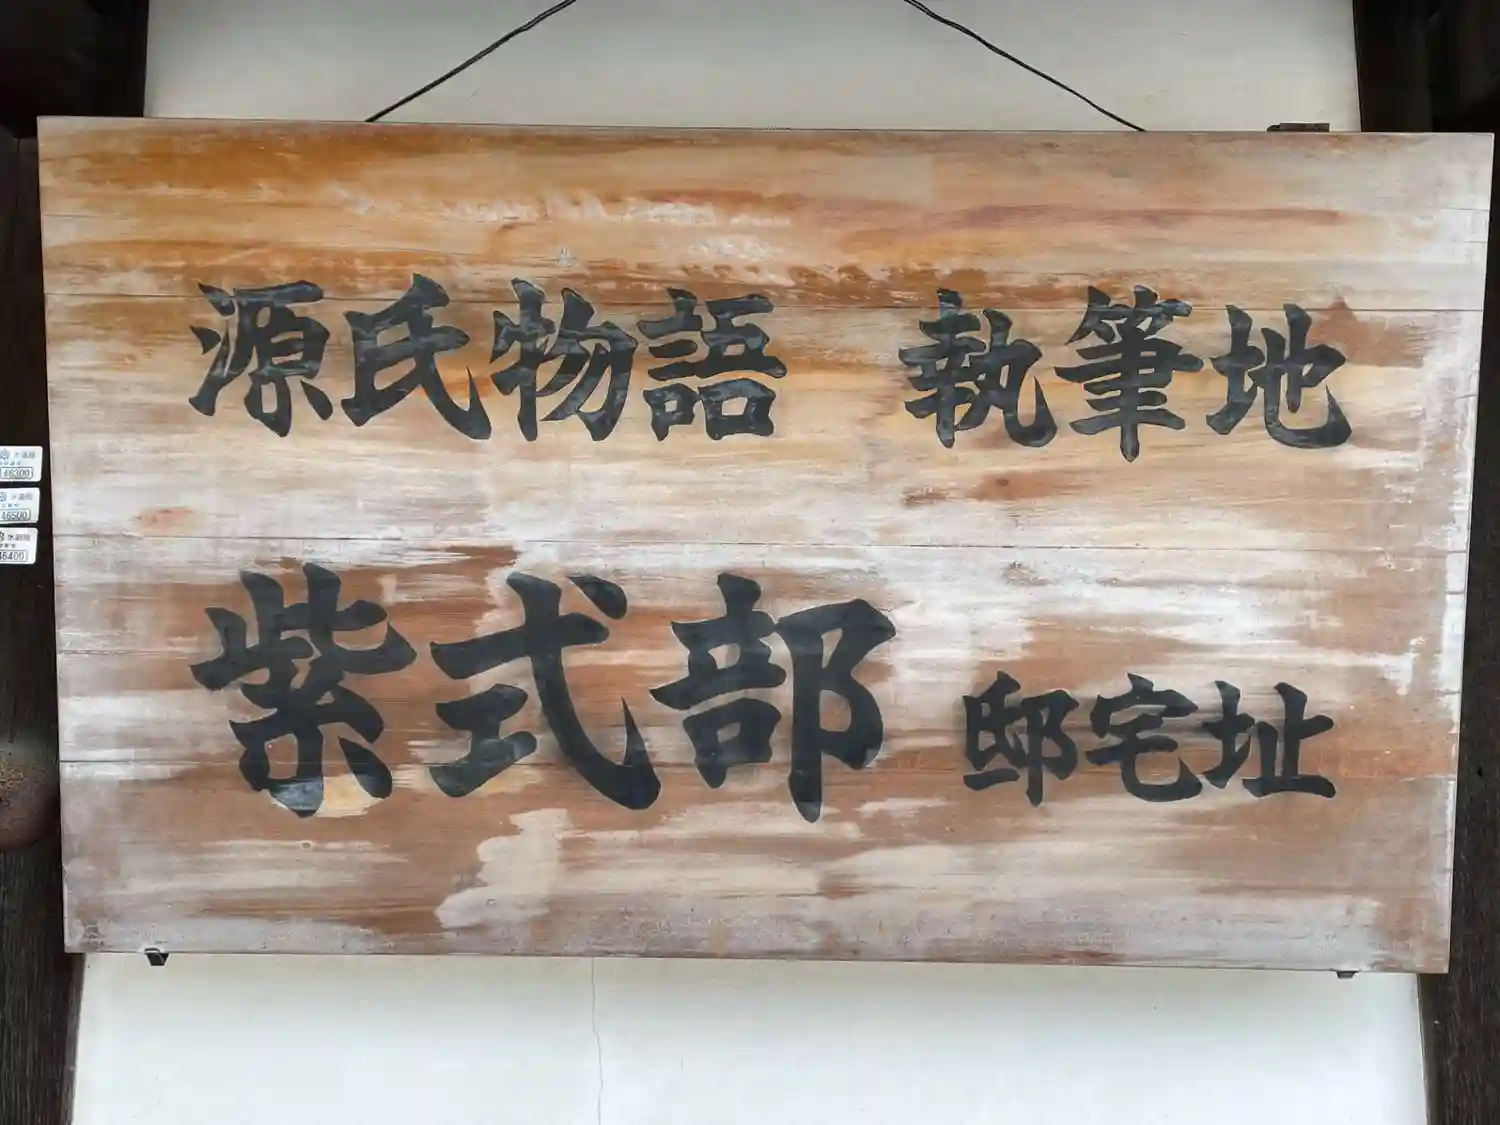 源氏物語 執筆地
紫式部 邸宅址
46300
46500
46400